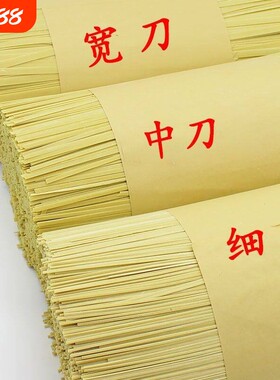 88
宽刀
中刀
细